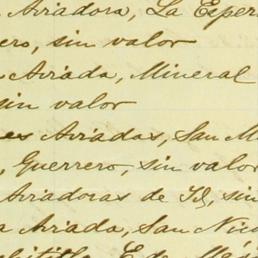 Aviadora, La Esper
ero, sin valor
Aviada, Mineral
sin valor
es Aviadas, San M
, Guerrero, sin valor
Aviadoras de Id, sin
a Aviada, San Nico